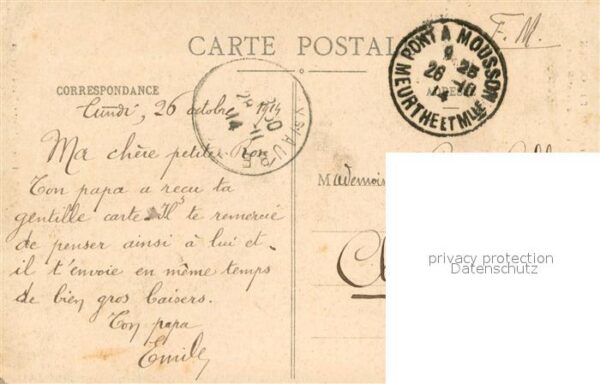 F. M.
CARTE POSTAL
PONT A MOUSSON
9 25
26 - 10
14
MEURTHE ET M<sup>LLE</sup>
CORRESPONDANCE
Lundi, 26 octobre 1914
Ma chère petite
Ton papa a reçu ta
gentille carte. Il te remercie
de penser ainsi à lui et
il t'envoie en même temps
de bien gros baisers.
Ton papa
Emile
Mademois
privacy protection
Datenschutz